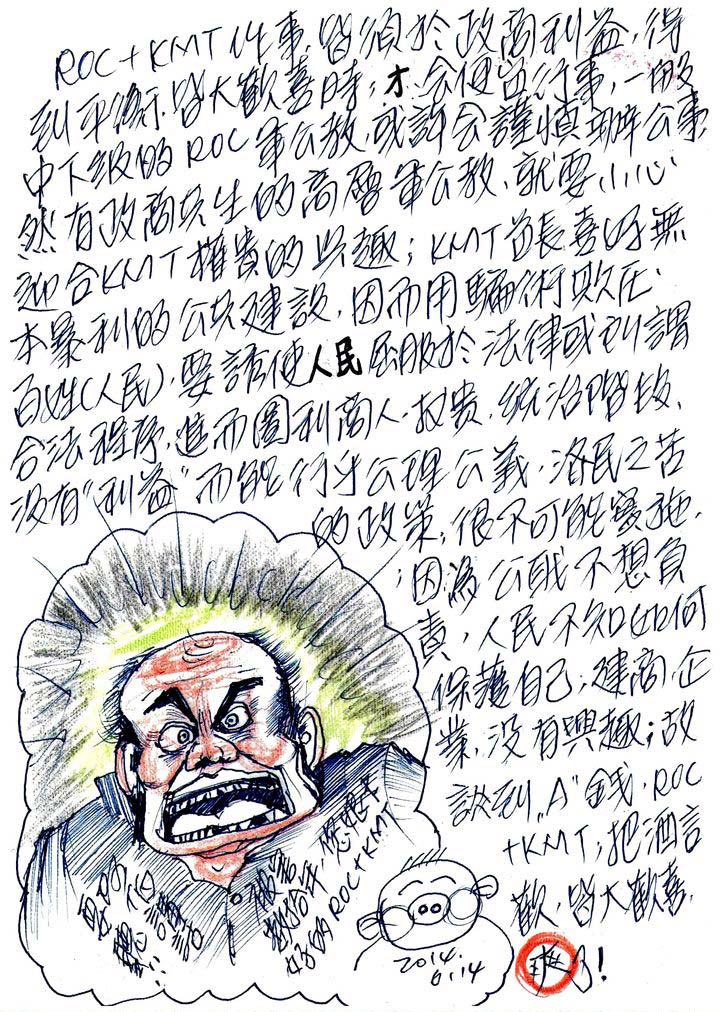 ROC+KMT 作事,皆須於政商利益,得
到平衡.皆大歡喜時;才會便宜行事,一般
中下級的ROC軍公教.或許會謹慎辦公事
然有政商共生的高層軍公教.就要小心
迎合KMT權貴的興趣;KMT首長喜好無
本暴利的公共建設,因而用騙術欺压、
百姓(人民),要誘使人民屈服於法律或所謂
合法程序,進而圖利商人.权贵.統治階段、
没有"利益"而能行乎公理公義,洛民之苦
的政策,很不可能實施.
;因為公職不想負
責,人民不知如何
保護自己;建商.企
業,没有興趣;故
談到"A"錢,ROC
+KMT;把酒言
歡,皆大歡喜.
爽了!
的ROC+KMT
2014.
6.14